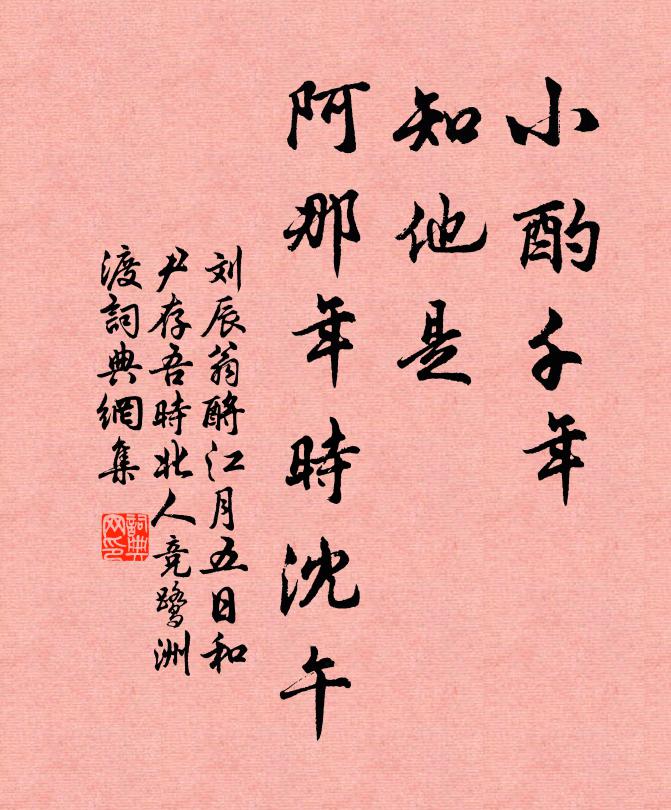 小酌千年
知他是
阿那年時沈午
刘辰翁酹江月五日和
尹存吾時北人竞鹭洲
渡詞典網集
詞典网印